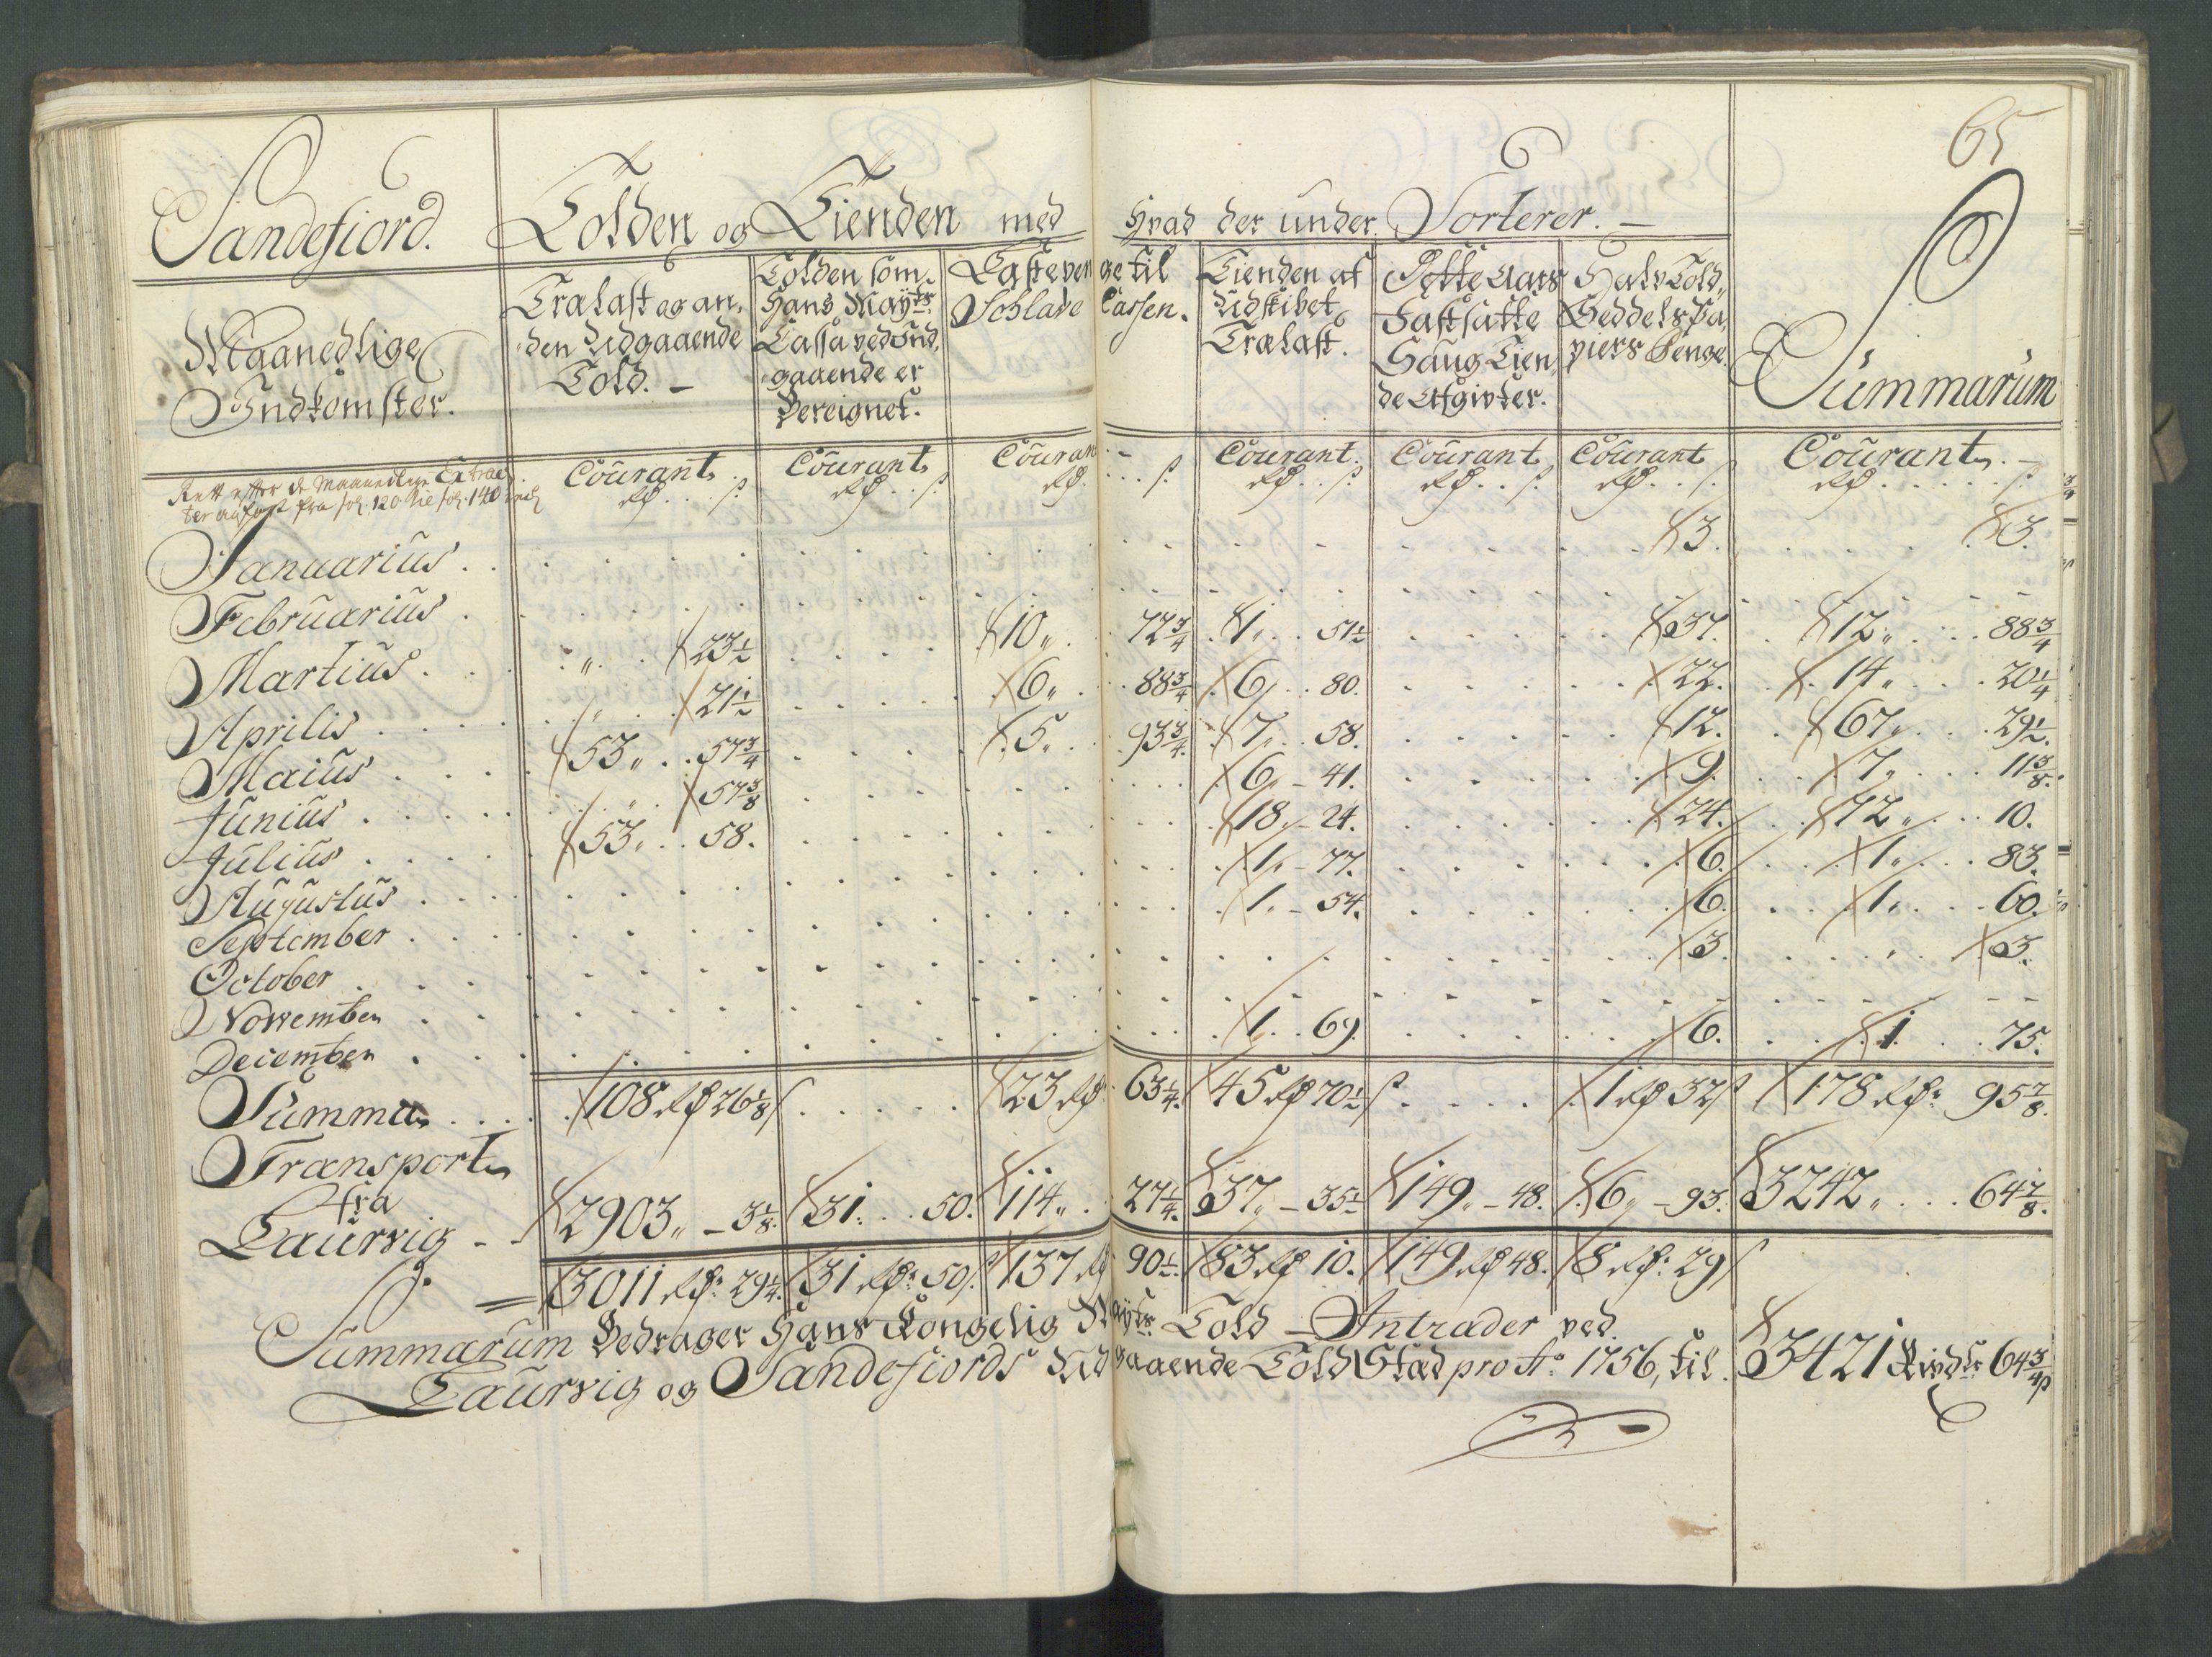 65
Sandefiord. Tolden og Tienden med Hvad der under Sorterer. —
Maanedlige Indkomster.
Trælast og anden Udgaaende Told. —
Tolden som Hans Mayts Cassa ved Indgaaende er Bereignet.
Lastepenge til Sclave Cassen.
Tienden af Udskibet Trælast.
Sexte Aars Fastsatte Saug Tiende Afgivter.
Halv Told Seddels Papiers Penge.
Summarum
Rett efter de Maanedlige Extracter anført fra fol. 120 til fol. 140 incl
Courant Rd . . ß. Courant Rd . . ß. Courant Rd . . . ß. Courant. Rd . . ß. Courant Rd . . ß. Courant Rd . . ß. Courant. — Rd . . . . . ß
Januarius . . 3. 3.
Februarius .
Martius . „ 23½ 10„ 72¾ 1„ 51½ 37. 12„ 88¾
Aprilis . „ 21½ 6„ 88¾ 6„ 80. 22. 14„ 20¼
Maius . 53„ 57¾ 5„ 93¾. 7„ 58. 12. 67„ 29½.
Junius . „ 57⅜ 6„ – 41. 9. 7„ 11⅜.
Julius . 53„ 58. 18„ – 24. 24. 72„ 10.
Augustus . 1„ – 77. 6. 1„ 83.
September . 1„ – 54. 6. 1„ 60.
October . 3. „ 3.
November .
December . 1. . 69. 6. 1. 75.
Summa . . . 108 Rd 26⅛ ß 23 Rd 63¼. 45 Rd 70½ ß 1 Rd 32 ß 178 Rd: 95⅞.
Transport fra Laurvig - - 2903„ – 3⅛. 31. . . 50. 114„ 27¼. 37„ – 35½ 149„ – 48. 6„ – 93. 3242„ . . . 64⅞.
3011 Rd: 29¼. 31 Rd: 50 ß. 137 Rd 90½. 83 Rd 10. 149 Rd 48. 8 Rd: 29 ß
Summarum Bedrager Hans Kongelig Mayts Told – Intrader ved
Laurvig og Sandefiords Udgaaende Told Stæd pro Ao. 1756, til. 3421 Rixdlr 64¾ ß